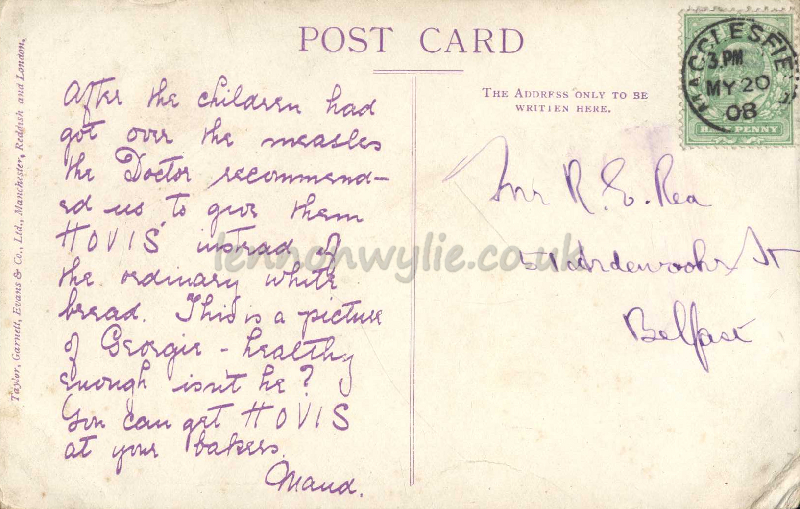 POST CARD
After the children had
got over the measles
the Doctor recommend-
ed us to give them
"HOVIS" instead of
the ordinary white
bread. This is a picture
of Georgie - healthy
enough isn't he?
You can get HOVIS
at your bakers.
Maud.
THE ADDRESS ONLY TO BE
WRITTEN HERE.
R. E. Rea
St
Belfast
MACCLESFIELD
3. PM
MY 20
08
HALF PENNY
Taylor, Garnett, Evans & Co., Ltd., Manchester, Reddish and London.
lennonwylie.co.uk